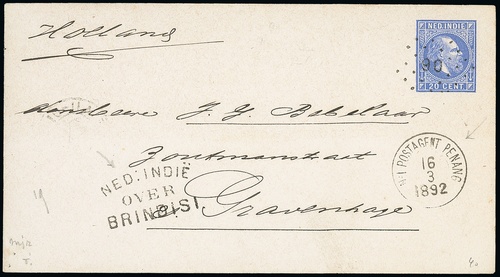 Holland
NED. INDIE
90
20 CENT
J. J. Bebelaar
Zoutmanstraat
NED: INDIË
OVER
BRINDISI
Gravenhage
NEI POSTAGENT PENANG
16
3
1892